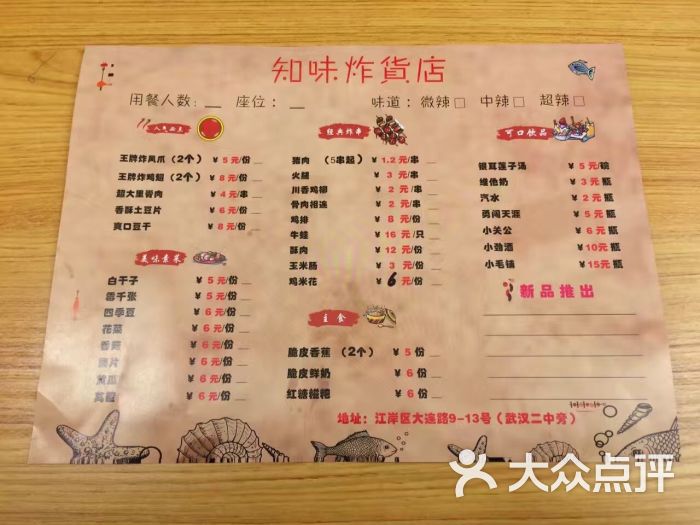 知味炸貨店
用餐人数：__ 座位：__ 味道：微辣□ 中辣□ 超辣□
王牌炸凤爪（2个） ￥5元/份
王牌炸鸡翅（2个） ￥8元/份
超大里脊肉 ￥4元/串
香酥土豆片 ￥6元/份
爽口豆干 ￥8元/份
美味素菜
白干子 ￥5元/份
云千张 ￥5元/份
四季豆 ￥6元/份
花菜 ￥6元/份
香菇 ￥6元/份
藕片 ￥6元/份
黄瓜 ￥6元/份
￥6元/份
经典炸串
猪肉（5串起） ￥1.2元/串
火腿 ￥3元/串
川香鸡柳 ￥2元/串
骨肉相连 ￥2元/串
鸡排 ￥8元/份
牛蛙 ￥16元/只
酥肉 ￥12元/份
玉米肠 ￥3元/份
鸡米花 ￥6元/份
主食
脆皮香蕉（2个） ￥5份
脆皮鲜奶 ￥6份
红糖糍粑 ￥6份
可口饮品
银耳莲子汤 ￥5元/碗
维他奶 ￥3元瓶
汽水 ￥2元瓶
勇闯天涯 ￥5元瓶
小关公 ￥6元瓶
小劲酒 ￥10元瓶
小毛铺 ￥15元瓶
新品推出
地址：江岸区大连路9-13号（武汉二中旁）
大众点评